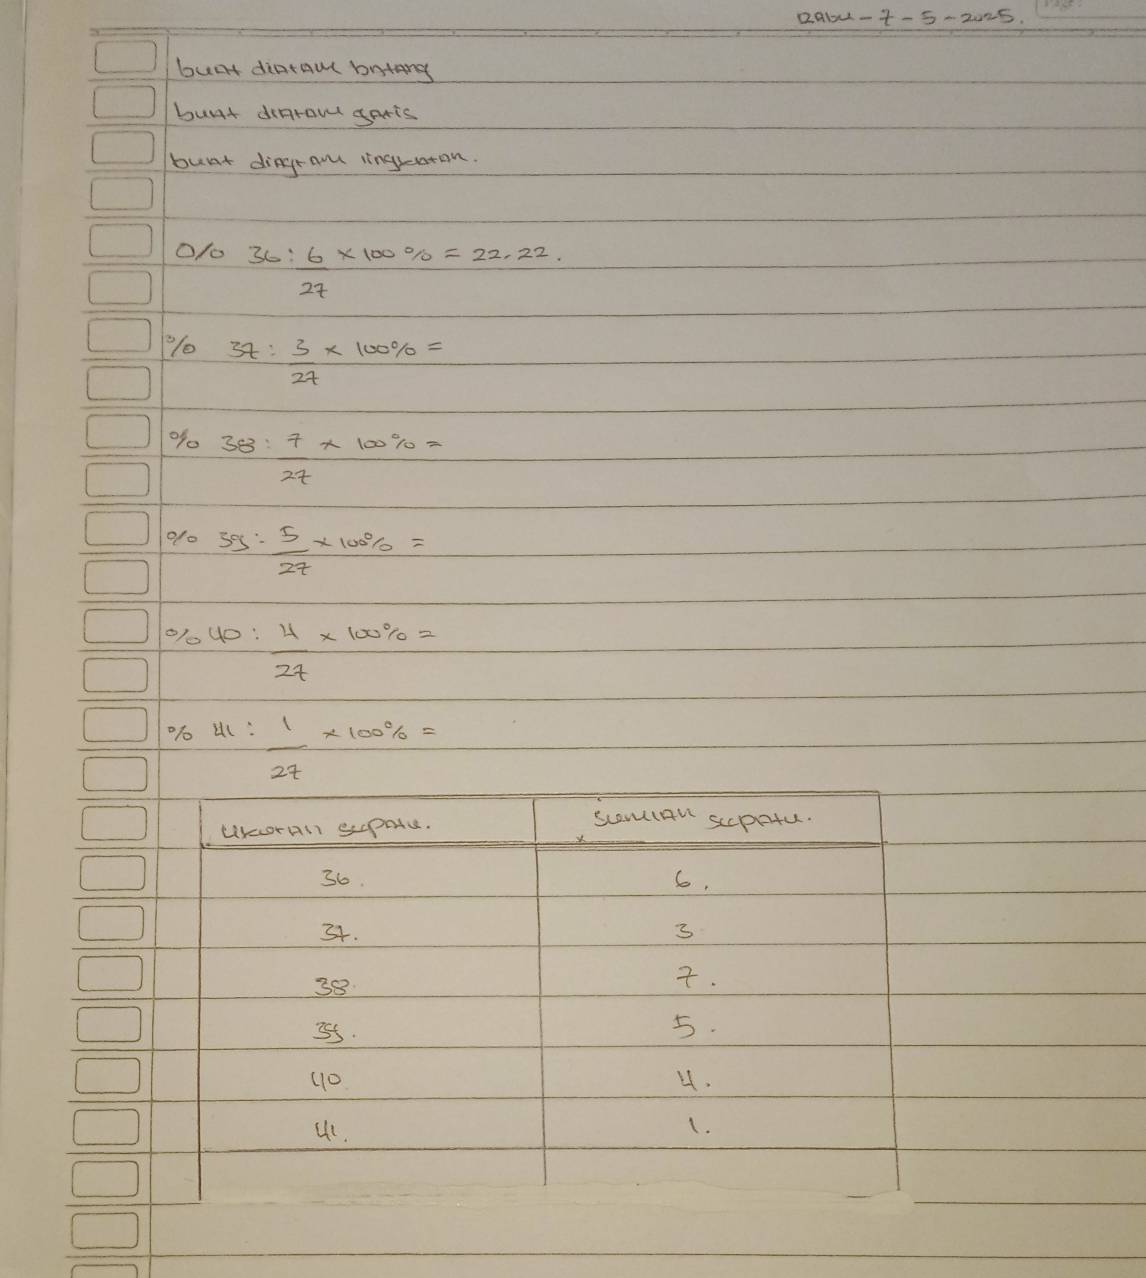 Rabu - 7 - 5 - 2025.
buat diagram batang
buat diagram garis
buat diagram lingkaran.
0/0 36 : 6/27 × 100% = 22,22.
% 37 : 3/27 × 100% =
% 38 : 7/27 × 100% =
% 39 : 5/27 × 100% =
% 40 : 4/27 × 100% =
% 41 : 1/27 × 100% =
Ukuran sepatu. Jumlah sepatu.
36. 6.
37. 3
38. 7.
39. 5.
40 4.
41. 1.